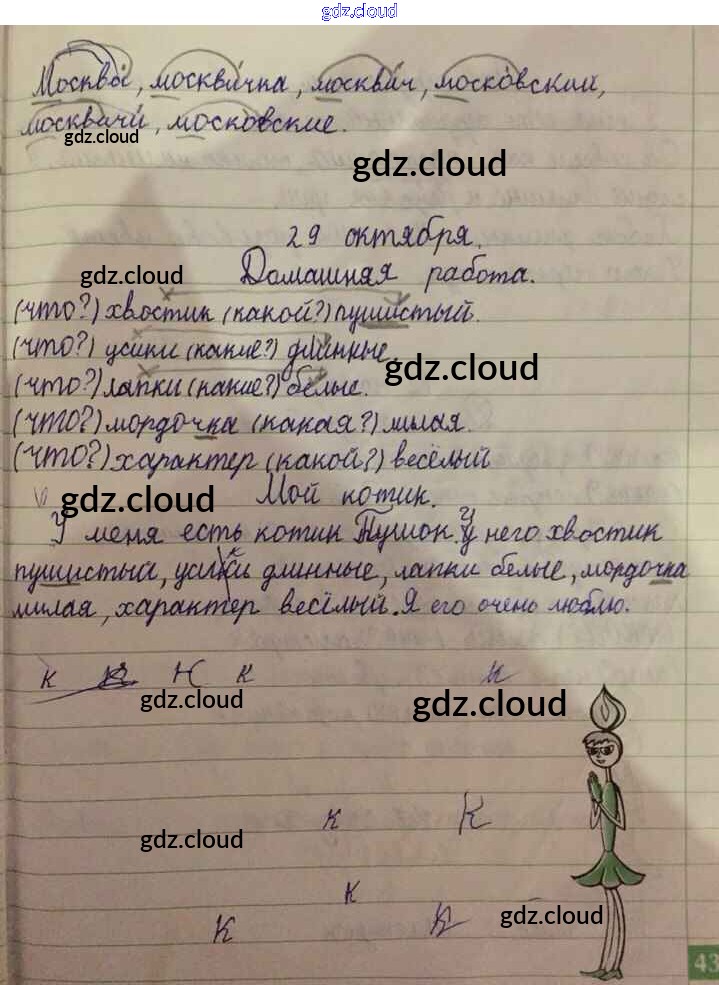 gdz.cloud
gdz.cloud
Москва́, москви́чка, москви́ч, моско́вский,
москвичи́, моско́вские.
gdz.cloud
gdz.cloud
29 октября.
Домашняя работа.
gdz.cloud
(что?) хвостик (какой?) пушистый.
(что?) усики (какие?) длинные.
gdz.cloud
(что?) лапки (какие?) белые.
(что?) мордочка (какая?) милая.
(что?) характер (какой?) весёлый
gdz.cloud
Мой котик.
gdz.cloud
У меня есть котик Пушок. У него хвостик
пушистый, усики длинные, лапки белые, мордочка
милая, характер весёлый. Я его очень люблю.
к к Н к к
gdz.cloud
gdz.cloud
к К
gdz.cloud
к
К К
gdz.cloud
43